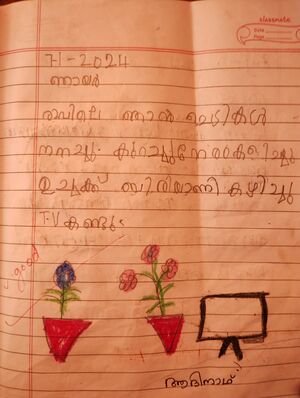 classmate
Date
Page
7-1-2024
ഞായർ
രാവിലെ ഞാൻ ചെടികൾ
നനച്ചു. കുറച്ചുനേരംകളിച്ചു
ഉച്ചക്ക് ബിരിയാണി കഴിച്ചു
T-V കണ്ടു.
good
ആദിനാഥ്